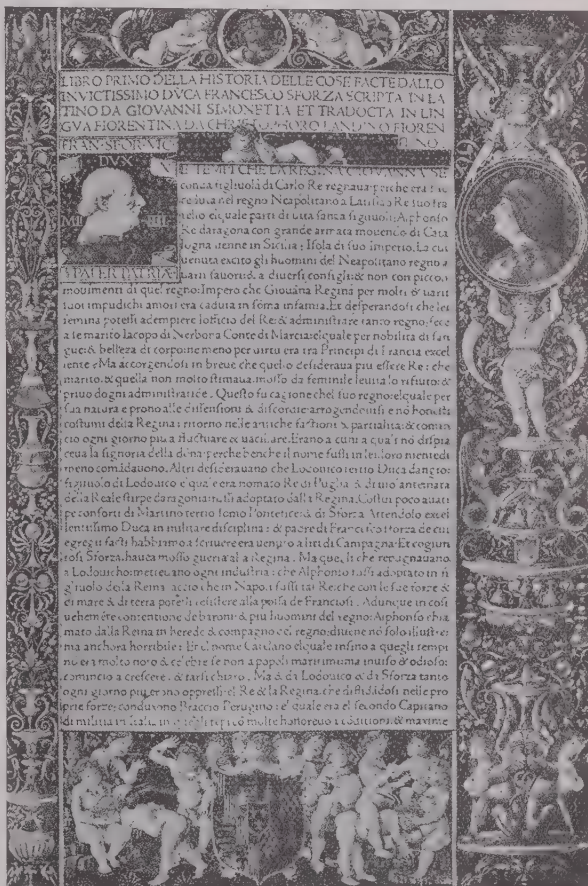 LIBRO PRIMO DELLA HISTORIA DELLE COSE FACTE DALLO
INVICTISSIMO DVCA FRANCESCO SFORZA SCRIPTA IN LA
TINO DA GIOVANNI SIMONETTA ET TRADOCTA IN LIN
GVA FIORENTINA DA CHRISTOPHORO LANDINO FIOREN
FRAN SFOR VIC
TINO
DVX
MLI IIII
PATER PATRIAE
E TEMPI CHE LA REGINA GIOVANNA SE
conda figliuola di Carlo Re regnaua: perche era suc
ceduta nel regno Neapolitano a Latislao Re suo fra
tello elquale parti di uita sanza figliuoli: Alphonso
Re daragona con grande armata mouendo di Cata
logna uenne in Sicilia: Isola di suo imperio. La cui
uenuta excito gli huomini del Neapolitano regno a
uarii fauori: & a diuersi consigli: & non con piccoli
mouimenti di quel regno: Impero che Giouana Regina per molti & uarii
suoi impudichi amori era caduta in soma infamia. Et desperandosi che lei
femina potessi adempiere lofficio del Re: & administrare tanto regno: fece
a se marito Iacopo di Nerbona Conte di Marcia: elquale per nobilita di san
gue: & belleza di corpo: ne meno per uirtu era tra Principi di Francia excel
lente. Ma accorgendosi in breue che quello desideraua piu essere Re: che
marito: & quella non molto stimaua: mosso da feminile leuita lo rifiuto: &
priuo dogni administratione. Questo fu cagione chel suo regno: elquale per
sua natura e prono alle dissensioni & discordie: arrogendouisi e no honesti
costumi della Regina: ritorno nelle antiche factioni & partialita: & comin
cio ogni giorno piu a fluctuare & uacillare. Erano a cuni a qua'i no dispia
ceua la signoria della dona: perche benche il nome fussi in lei: loro niente di
meno comandauono. Altri desiderauano che Lodouico tertio Duca dangio:
figliuolo di Lodouico e'quale era nomato Re di Puglia & di uiolante nata
della Reale stirpe daragonia: fussi adoptato dalla Regina. Costui poco auati
pe conforti di Martino tertio somo Pontefice: & di Sforza Attendolo excel
lentissimo Duca in militare disciplina: & padre di Francesco sforza de cui
egregii facti habbiamo a scriuere era uenuto a liti di Campagna: Et cogiun
tosi Sforza, hauea mosso guerra al a Regina. Ma quelli che repugnauano
a Lodouicho: metteuano ogni industria: che Alphonso fussi adoptato in fi
g'iuolo della Reina: accio che in Napoli fussi tal Re: che con le sue forze &
di mare & di terra potessi resistere alla possa de Franciosi. Adunque in cosi
uehemete contentione de baroni: & piu huomini del regno: Alphonso chia
mato dalla Reina in herede & compagno del regno: diuene no solo illustre:
ma anchora horribile: Et el nome Catelano elquale insino a quegli tempi
no era molto noto & celebre se non a popoli maritimi: ma inuiso & odioso:
comincio a crescere: & farsi chiaro. Ma & da Lodouico & da Sforza tanto
ogni giorno piu erono oppressi el Re & la Regina: che diffidadosi nelle pro
prie forze: conduxono Braccio Perugino: e' quale era el secondo Capitano
di militia in Italia in quelli tepi co molte honoreuoli conditioni: & maxime